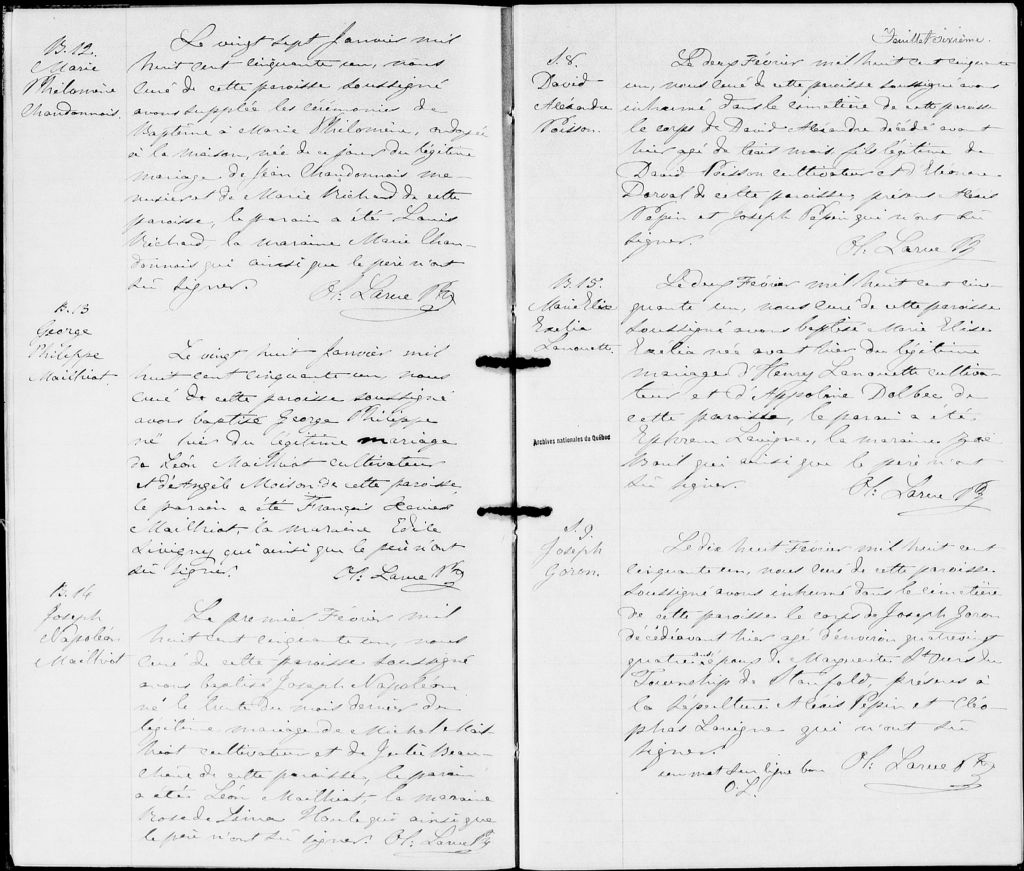 B. 12.
Marie
Philomène
Chandonnais.
Le vingt sept Janvier mil
huit cent cinquante un, nous
curé de cette paroisse soussigné
avons supplée les cérémonies de
Baptême à Marie Philomène, ondoyée
à la maison, née de ce jour du légitime
mariage de Jean Chandonnais me-
nuisier et de Marie Richard de cette
paroisse, le parain a été Louis
Richard la maraine Marie Chan-
donnais qui ainsi que le père n'ont
sû signer.
Ol: Larue Ptr
B. 13
George
Philippe
Mailhiot.
Le vingt huit Janvier mil
huit cent cinquante un, nous
curé de cette paroisse soussigné
avons baptisé George Philippe
né hier du légitime mariage
de Léon Mailhiot cultivateur
et d'Angèle Moison de cette paroisse,
le parain a été François
Mailhiot, la maraine Edile
Livigny qui ainsi que le père n'ont
sû signer.
Ol: Larue Ptr
B. 14
Joseph
Napoléon
Mailhiot
Le premier Février mil
huit cent cinquante un, nous
curé de cette paroisse soussigné
avons baptisé Joseph Napoléon
né le trente du mois dernier du
légitime mariage de Michel Mail-
hiot cultivateur et de Julie Beau-
chène de cette paroisse, le parain
a été Léon Mailhiot, la maraine
Rose de Lima Houle qui ainsi que
le père n'ont sû signer. Ol: Larue Ptr
Feuillet sixième.
S. 8.
David
Alexandre
Poisson.
Le deux Février mil huit cent cinquante
un, nous curé de cette paroisse soussigné avons
inhumé dans le cimetière de cette paroisse
le corps de David Alexandre décédé avant
hier agé de trois mois fils légitime de
David Poisson cultivateur et d'Eléonore
Dorval de cette paroisse, présens Alexis
Pépin et Joseph Pépin qui n'ont sû
signer.
Ol: Larue Ptr
B. 15.
Marie Elise
Exélia
Lanouette.
Le deux Février mil huit cent cin-
quante un, nous curé de cette paroisse
soussigné avons baptisé Marie Elise
Exélia née avant hier du légitime
mariage d'Henry Lanouette cultiva-
teur et d'Appoline Dolbec de
cette paroisse, le parain a été
Ephrem Lavigne, la maraine
qui ainsi que le père n'ont
sû signer.
Ol: Larue Ptr
Archives nationales du Québec
S. 9.
Joseph
Goron.
Le dix huit Février mil huit cent
cinquante un, nous curé de cette paroisse
soussigné avons inhumé dans le cimetière
de cette paroisse le corps de Joseph Goron
décédé avant hier agé d'environ quatrevingt
quatre ans époux de Marguerite St Ours du
Township de Stanfold, présens à
la sépulture Alexis Pépin et Cléo-
phas Lavigne qui n'ont sû
signer.
un mot sur ligne bon
O. L.
Ol: Larue Ptr